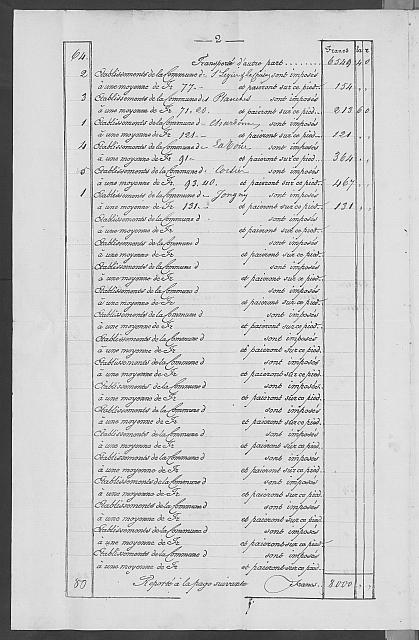 2
Francs
64. Transporté d'autre part 6549 40
2 Etablissements de la Commune de St Légier sont imposés
à une moyenne de Fr 77.— et paieront sur ce pied 154 "
3 Etablissements de la Commune d sont imposés
à une moyenne de Fr 71.20 et paieront sur ce pied 213 60
1 Etablissements de la Commune d sont imposés
à une moyenne de Fr 121.— et paieront sur ce pied 121 "
4 Etablissements de la Commune de La Tour sont imposés
à une moyenne de Fr 91.— et paieront sur ce pied 364 "
5 Etablissements de la Commune de Corsier sont imposés
à une moyenne de Fr 93.40 et paieront sur ce pied 467 "
1 Etablissements de la Commune de Jongny sont imposés
à une moyenne de Fr 131.— et paieront sur ce pied 131 "
Etablissements de la Commune d sont imposés
à une moyenne de Fr et paieront sur ce pied
Etablissements de la Commune d sont imposés
à une moyenne de Fr et paieront sur ce pied
Etablissements de la Commune d sont imposés
à une moyenne de Fr et paieront sur ce pied
Etablissements de la Commune d sont imposés
à une moyenne de Fr et paieront sur ce pied
Etablissements de la Commune d sont imposés
à une moyenne de Fr et paieront sur ce pied
Etablissements de la Commune d sont imposés
à une moyenne de Fr et paieront sur ce pied
Etablissements de la Commune d sont imposés
à une moyenne de Fr et paieront sur ce pied
Etablissements de la Commune d sont imposés
à une moyenne de Fr et paieront sur ce pied
Etablissements de la Commune d sont imposés
à une moyenne de Fr et paieront sur ce pied
Etablissements de la Commune d sont imposés
à une moyenne de Fr et paieront sur ce pied
Etablissements de la Commune d sont imposés
à une moyenne de Fr et paieront sur ce pied
Etablissements de la Commune d sont imposés
à une moyenne de Fr et paieront sur ce pied
Etablissements de la Commune d sont imposés
à une moyenne de Fr et paieront sur ce pied
Etablissements de la Commune d sont imposés
à une moyenne de Fr et paieront sur ce pied
Etablissements de la Commune d sont imposés
à une moyenne de Fr et paieront sur ce pied
80 Reporté à la page suivante Francs 8000 "